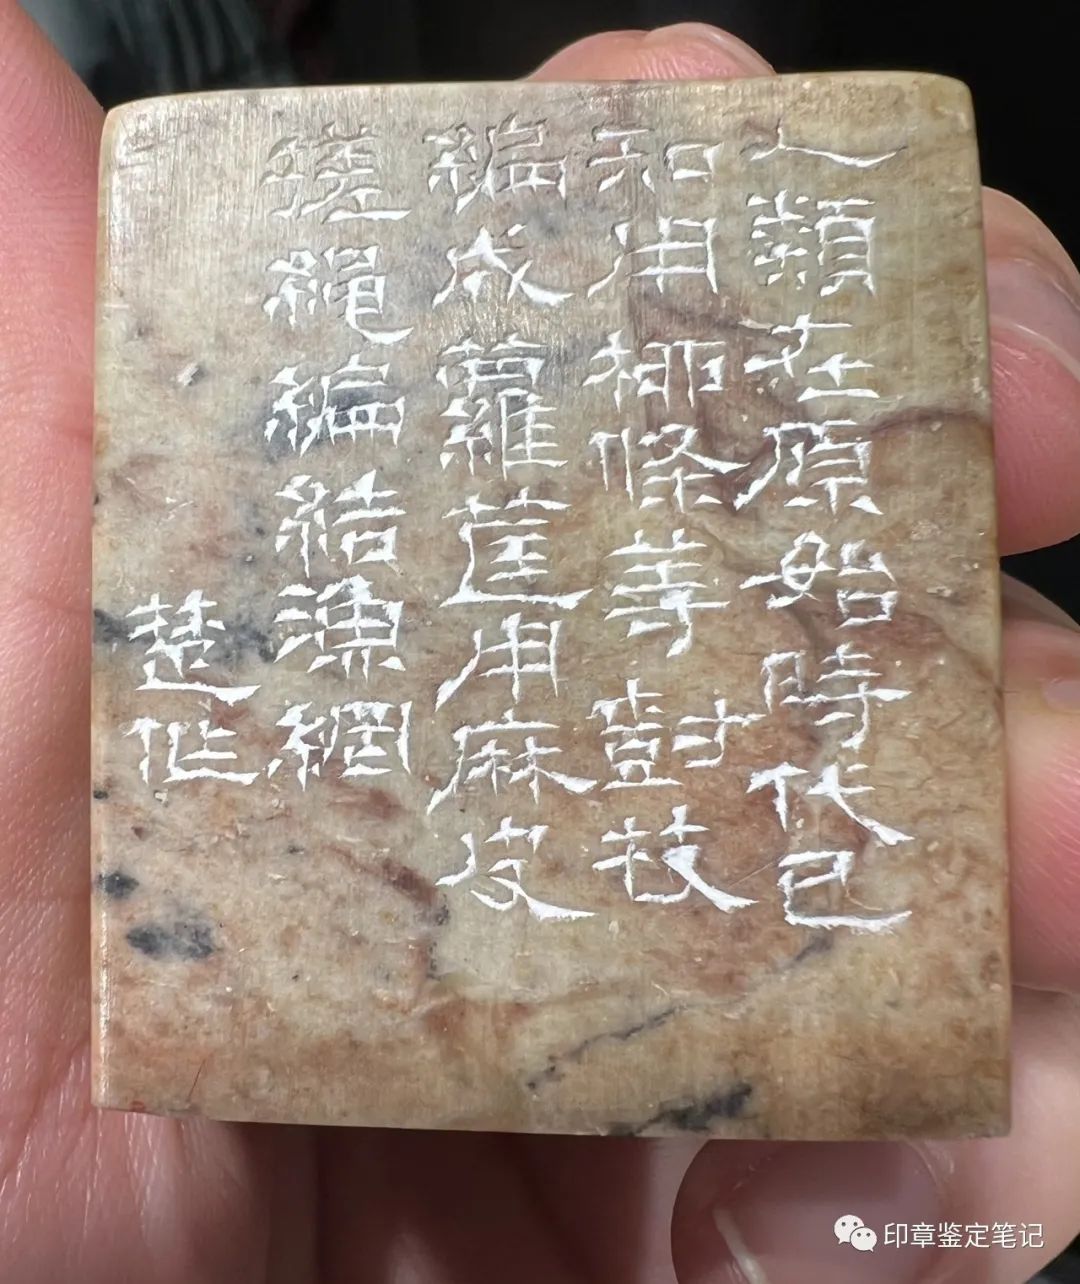 人類在原始時代已
知用柳條等尌枝
編成蘿筐用麻皮
搓繩編結漁網
楚作
印章鉴定笔记